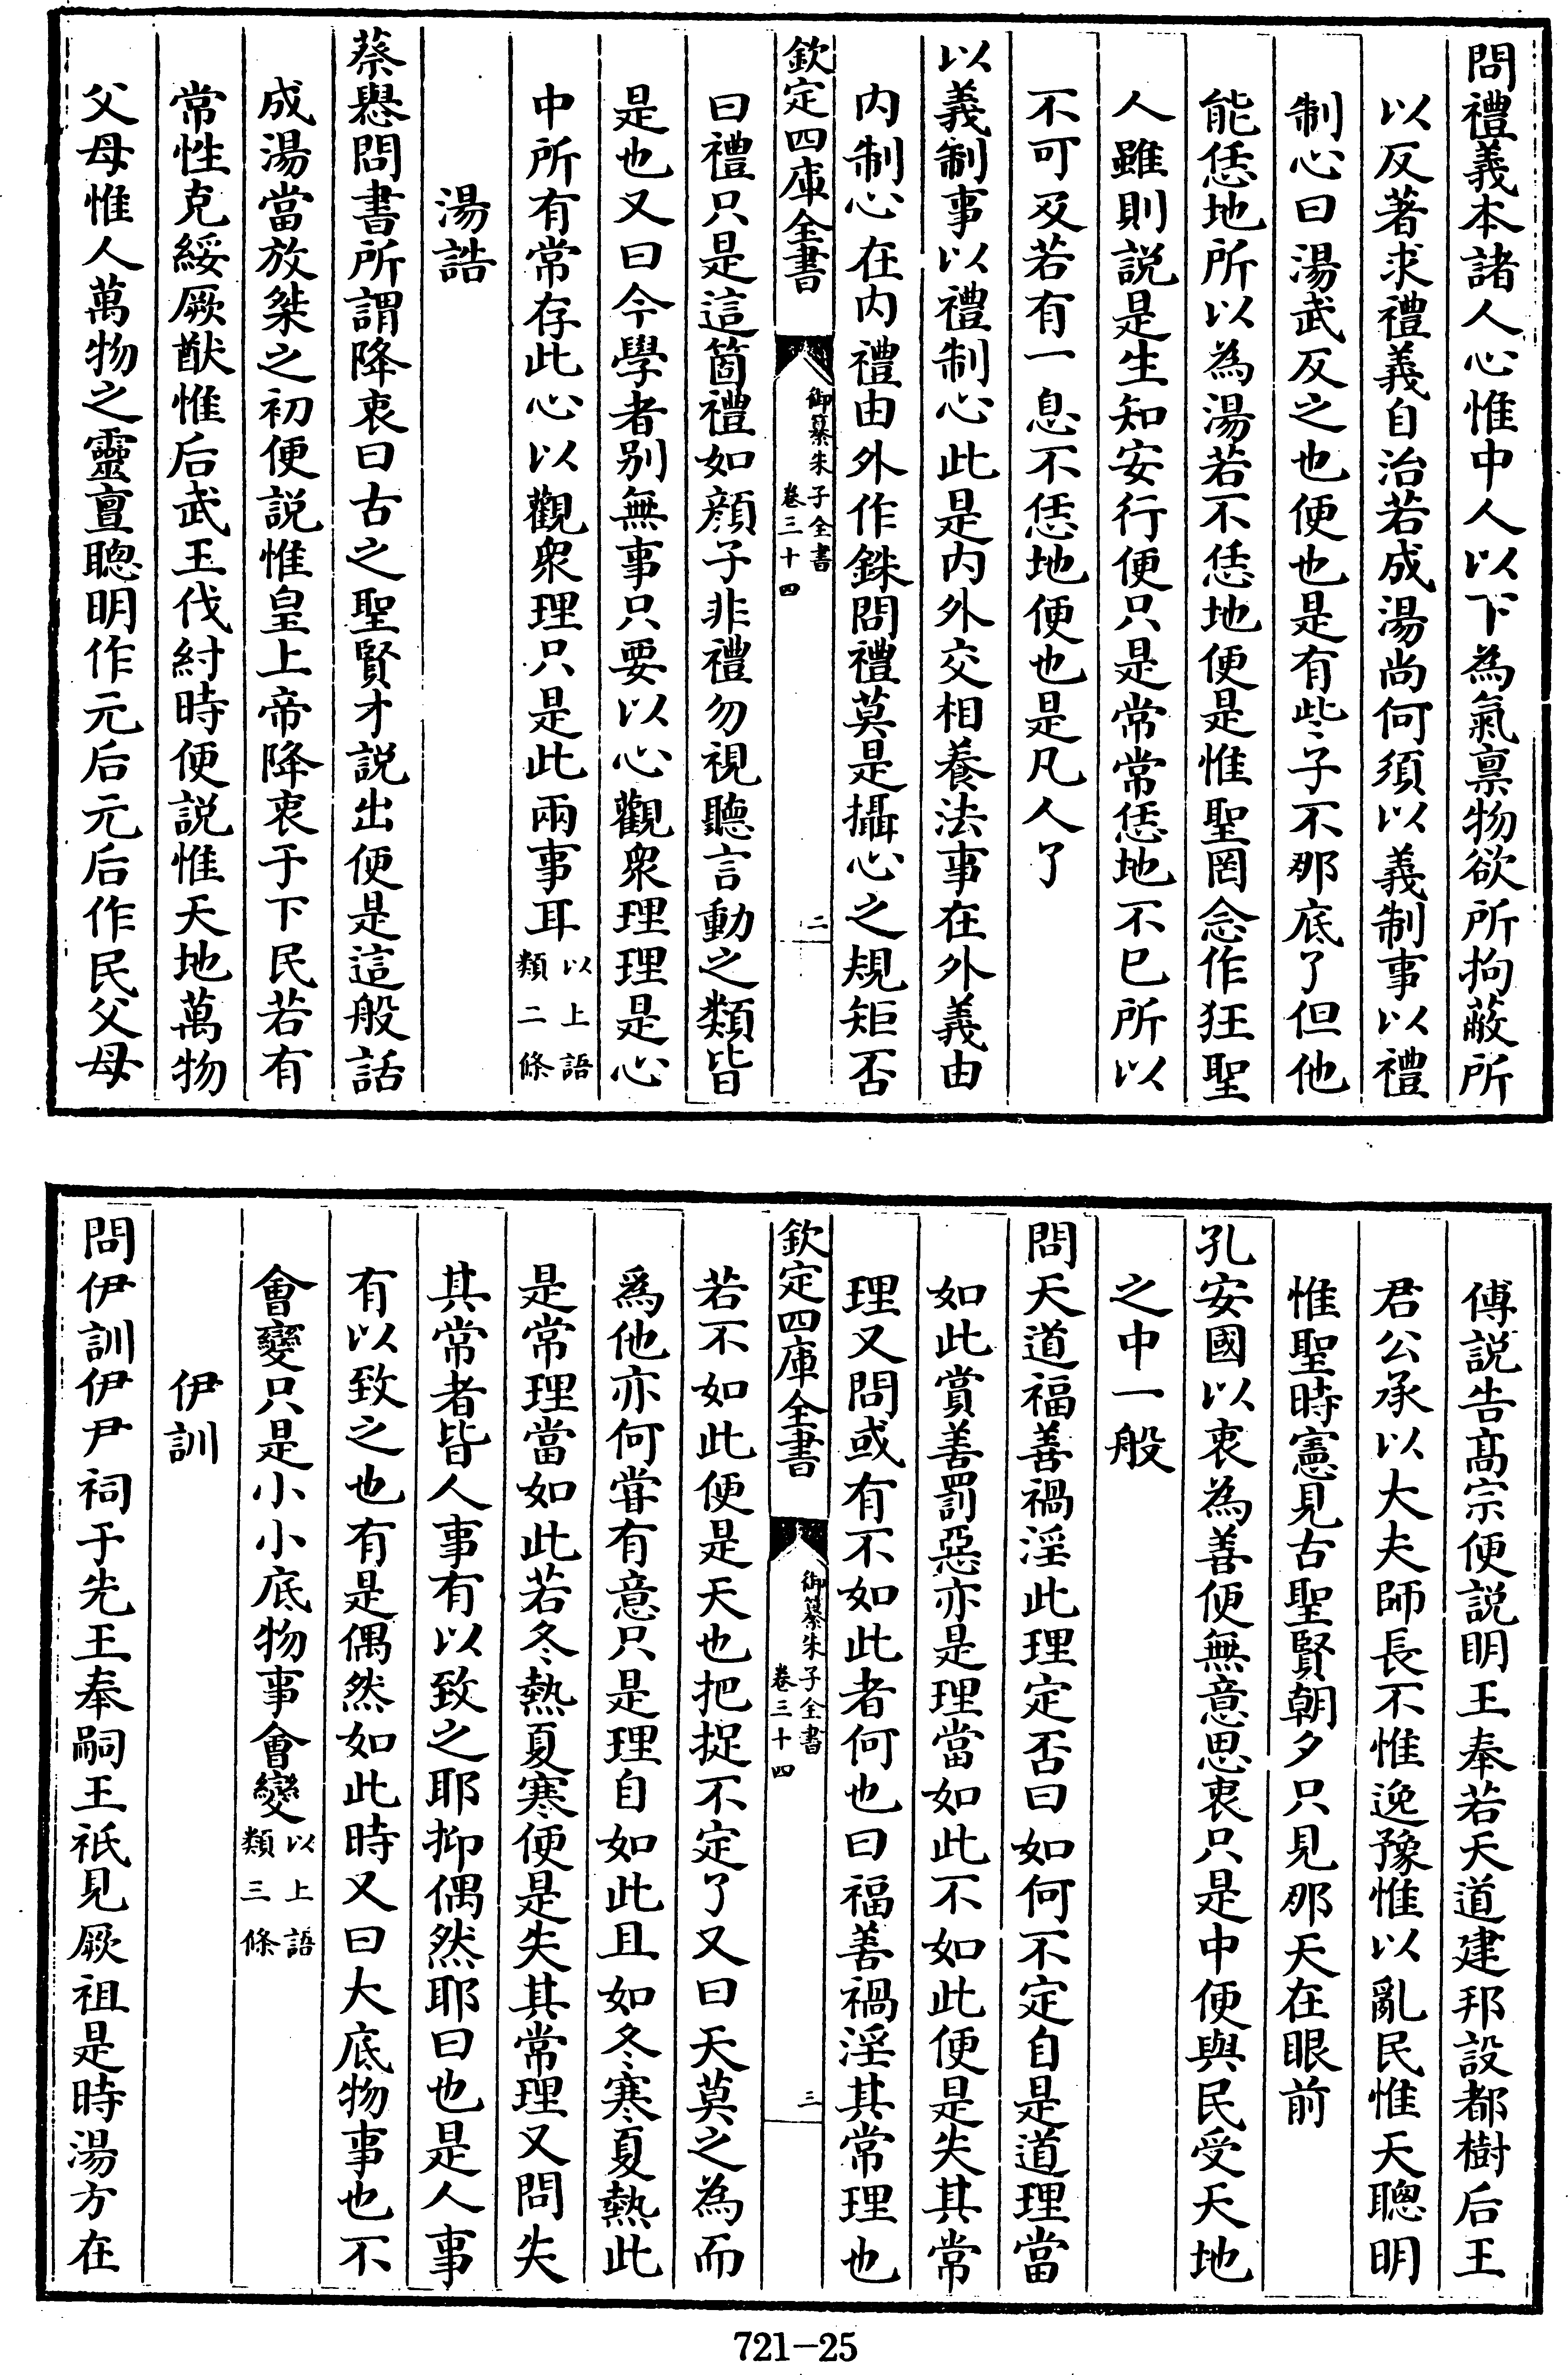 問禮義本諸人心惟中人以下為氣禀物欲所拘蔽所
以反著求禮義自治若成湯尚何須以義制事以禮
制心曰湯武反之也便也是有些子不那底了但他
能恁地所以為湯若不恁地便是惟聖罔念作狂聖
人雖則説是生知安行便只是常常恁地不已所以
不可及若有一息不恁地便也是凡人了
以義制事以禮制心此是内外交相養法事在外義由
内制心在内禮由外作銖問禮莫是攝心之規矩否
欽定四庫全書
御纂朱子全書
卷三十四
二
曰禮只是這箇禮如顔子非禮勿視聽言動之類皆
是也又曰今學者别無事只要以心觀衆理理是心
中所有常存此心以觀衆理只是此兩事耳以上語類二條
湯誥
蔡㦛問書所謂降衷曰古之聖賢才説出便是這般話
成湯當放桀之初便説惟皇上帝降衷于下民若有
常性克綏厥猷惟后武王伐紂時便説惟天地萬物
父母惟人萬物之靈亶聰明作元后元后作民父母
傅説告髙宗便説明王奉若天道建邦設都樹后王
君公承以大夫師長不惟逸豫惟以亂民惟天聰明
惟聖時憲見古聖賢朝夕只見那天在眼前
孔安國以衷為善便無意思衷只是中便與民受天地
之中一般
問天道福善禍淫此理定否曰如何不定自是道理當
如此賞善罰惡亦是理當如此不如此便是失其常
理又問或有不如此者何也曰福善禍淫其常理也
欽定四庫全書
御纂朱子全書
卷三十四
三
若不如此便是天也把捉不定了又曰天莫之為而
爲他亦何甞有意只是理自如此且如冬寒夏熱此
是常理當如此若冬熱夏寒便是失其常理又問失
其常者皆人事有以致之耶抑偶然耶曰也是人事
有以致之也有是偶然如此時又曰大底物事也不
會變只是小小底物事會變以上語類三條
伊訓
問伊訓伊尹祠于先王奉嗣王祇見厥祖是時湯方在
721-25